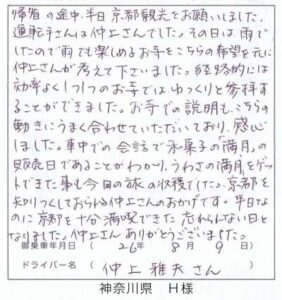 帰省の途中、半日京都観光をお願いしました。
運転手さんは仲上さんでした。その日は、雨で
したので雨でも楽しめるお寺をこちらの希望を元に
仲上さんが考えて下さいました。経路的には
効率よく1つ1つのお寺ではゆっくりと参拝す
ることができました。お寺での説明も、こちらの
動きにうまく合わせていただいており、感心
しました。車中での会話で和菓子の「満月」の
販売日であることがわかり、うわさの「満月」をゲット
できた事も今回の旅の収穫でした。京都を
知りつくしておられる仲上さんのおかげです。半日な
のに京都を十分満喫できた忘れられない日と
なりました。仲上さんありがとうございました。
御乗車年月日 ( 26年 8月 9日 )
ドライバー名 ( 仲上 雅夫さん )
神奈川県 H様